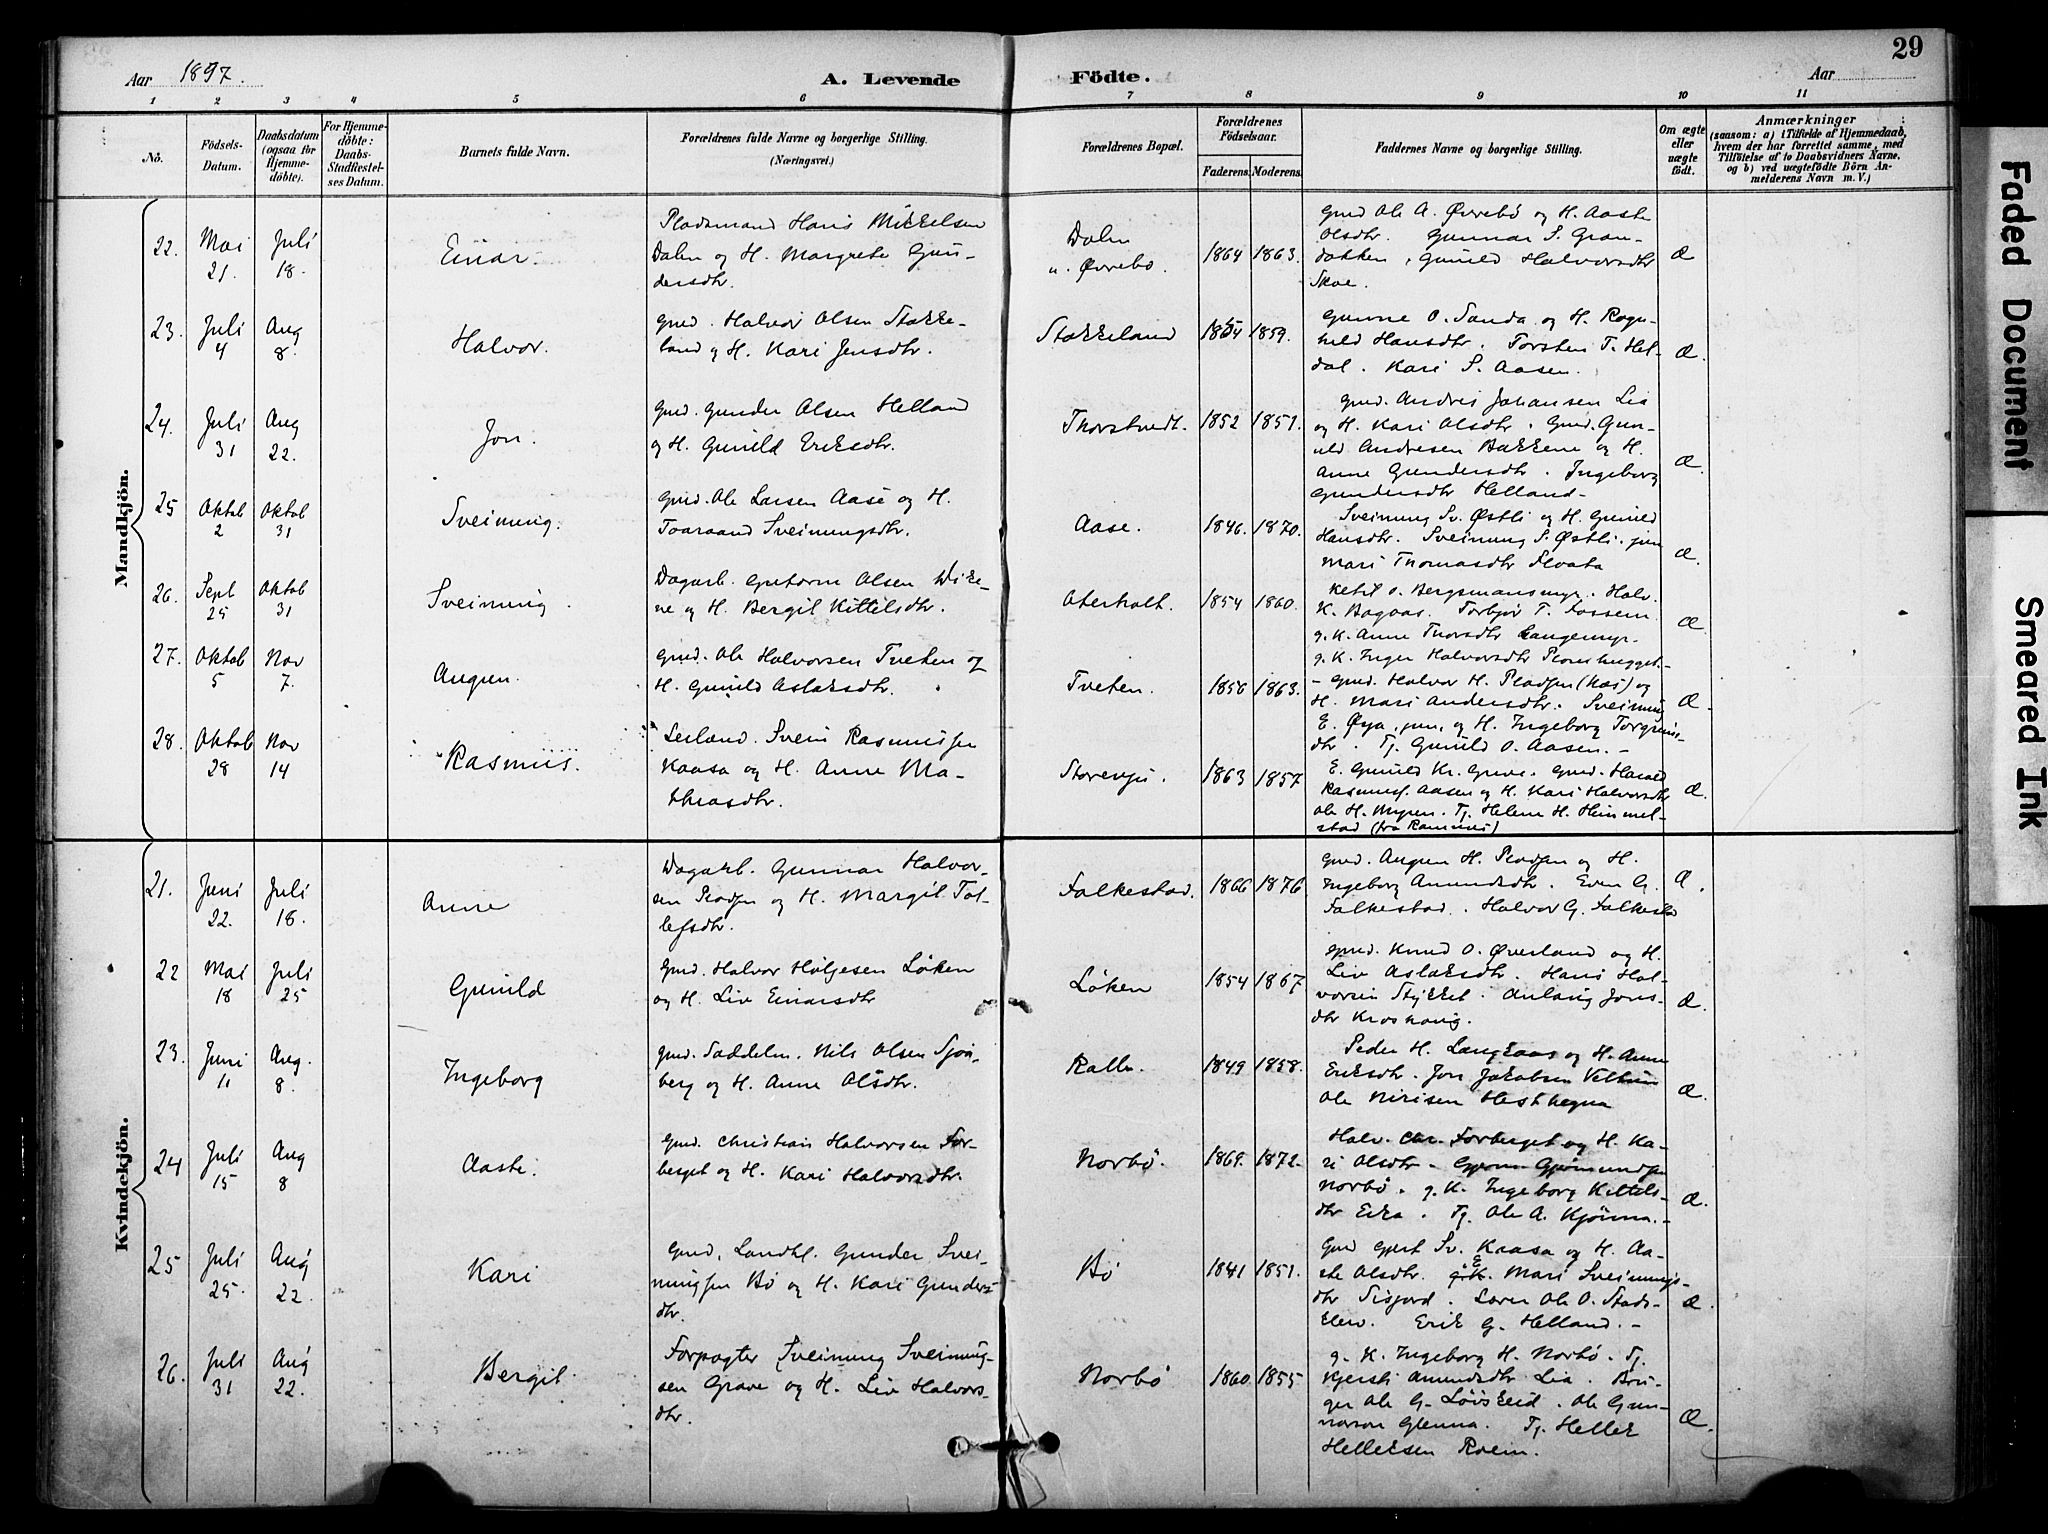 29
Aar 1897.
A. Levende
Födte.
Aar
1 2 3 4 5 6 7 8 9 10 11
No.
Födsels-Datum.
Daabsdatum (ogsaa for Hjemme-döbte).
For Hjemme-döbte: Daabs-Stadfæstel-ses Datum.
Barnets fulde Navn.
Forældrenes fulde Navne og borgerlige Stilling. (Næringsvei.)
Forældrenes Bopæl.
Forældrenes Födselsaar.
Faderens. Moderens.
Faddernes Navne og borgerlige Stilling.
Om ægte eller uægte födt.
Anmærkninger
(saasom: a) i Tilfælde af Hjemmedaab, hvem der har forrettet samme, med Tilföielse af to Daabsvidners Navne, og b) ved uægtefödte Börn An-melderens Navn m. V.)
Mandkjön.
22. Mai 21. Juli 18. Einar.
Pladsmand Hans Mikkelsen
Dalen og H. Margrete Gun-
dersdtr.
Dalen u. Øvrebø. 1864 1863.
Gmd Ole A. Øvrebø og H. Aaste
Olsdtr. Gunnar S. Gran-
bakken, Gunild Halvorsdtr
Skoe.
Æ
23. Juli 4 Aug 8. Halvor.
Gmd. Halvor Olsen Stokke-
land og H. Kari Jensdtr.
Stokkeland 1854 1859.
Gunne O. Sanda og H. Ragn-
hild Hansdtr. Torsten T. Hel-
dal. Kari S. Aasen.
Æ.
24. Juli 31 Aug 22. Jon.
Gmd. Gunder Olsen Helland
og H. Gunild Eriksdtr.
Thorstvedt. 1852 1851.
Gmd. Andres Johansen Lia
og H. Kari Olsdtr. Gmd. Gun-
uld Andresen Bakkene og H.
Anne Gundersdtr. Ingeborg
Gundersdtr Helland.
Æ.
25 Oktob 2 Oktob 31 Sveinung.
Gmd. Ole Larsen Aase og H.
Taaraand Sveinungsdtr.
Aase. 1846. 1870.
Sveinung Sv. Østli og H. Gunild
Hansdtr. Sveinung S. Østli. jun
Mari Thomasdtr Flaata
Æ.
26. Sept 25 Oktob 31 Sveinung.
Dagarb. Guttorm Olsen Vike-
ne og H. Bergit Kittilsdtr.
Oterholt. 1854 1860.
Ketil O. Bergsmansmyr. Halv.
K. Bagaas. Torbjør T. Fossem
g. K. Anne Thorsdtr Langemyr.
g. K. Inger Halvorsdtr
Æ.
27. Oktob 5 Nov 7. Augun.
Gmd. Ole Halvorsen Tveten og
H. Gunild Aslaksdtr.
Tveten. 1856 1863.
Gmd. Halvor H. Pladsen og
H. Mari Andersdtr. Sveinung
E. Øya, jun. og H. Ingeborg Torgrims-
dtr. Tj. Gunild O. Aasen.
Æ.
28. Oktob 28 Nov 14 Rasmus.
Leilænd. Svein Rasmussen
Kaasa og H. Anne Ma-
thiasdtr.
Storemyr. 1863 1857
E. Gunild Kr. Grave. Gmd. Harald
Rasmuss. Aasen og H. Kari Halvorsdtr
Ole H. Myren. Tj. Helene H. Himmel-
stad
Æ.
Kvindekjön.
21. Juni 22. Juli 18. Anne
Dagarb. Gunnar Halvor-
sen Pladsen og H. Margit Tol-
lefsdtr.
Falkestad. 1866 1876
Gmd. Augun H. Pladsen og H.
Ingeborg Amundsdtr. Even G.
Falkestad. Halvor G. Falkestad
Æ.
22 Mai 18 Juli 25 Gunild
Gmd. Halvor Holjesen Løken
og H. Liv Einarsdtr
Løken 1854 1867
Gmd. Knud O. Øverland og H.
Liv Aslaksdtr. Hans Hal-
vorsen Stykket. Anlaug Jons-
dtr Kroshaug.
Æ.
23. Juni 11 Aug. 8. Ingeborg
Gmd. Saddelm. Nils Olsen Sjøn-
berg og H. Anne Olsdtr.
Kalle. 1849 1858.
Peder H. Langkaas og H. Anne
Eriksdtr. Jon Jakobsen
Ole Nirisen Hesthegna
Æ.
24 Juli 15 Aug 8 Aaste.
Gmd. Christian Halvorsen For-
berget og H. Kari Halvorsdtr.
Norbø. 1869. 1872.
Halv. Chr. Forberget og H. Ka-
ri Olsdtr. Gjermundsen
Norbø. g. K. Ingeborg Kittils-
dtr Eika. Tj. Ole A. Kjønna.
Æ.
25 Juli 25. Aug 22. Kari
Gmd, Landhl. Gunder Svei-
nungsen Bø og H. Kari Gunders-
dtr.
Bø 1841 1851.
Gmd Gjert Sv. Kaasa og H. Aa-
ste Olsdtr. E. Mari Sveinungs-
dtr Sisjord. Lærer Ole O. Stads-
klev. Erik G. Helland.
Æ.
26. Juli 31 Aug 22. Bergit.
Forpagter Sveinung Sveinung-
sen Grave og H. Liv Halvors-
dtr.
Norbø 1860. 1855
g. K. Ingeborg H. Norbø. Tj.
Kjersti Amundsdtr Lia. Bru-
ger Ole G. Løiskeid. Ole Gun-
narson Glenna. Tj. Hellek
Helleksen Roein.
Æ.
Faded Document
Smeared Ink